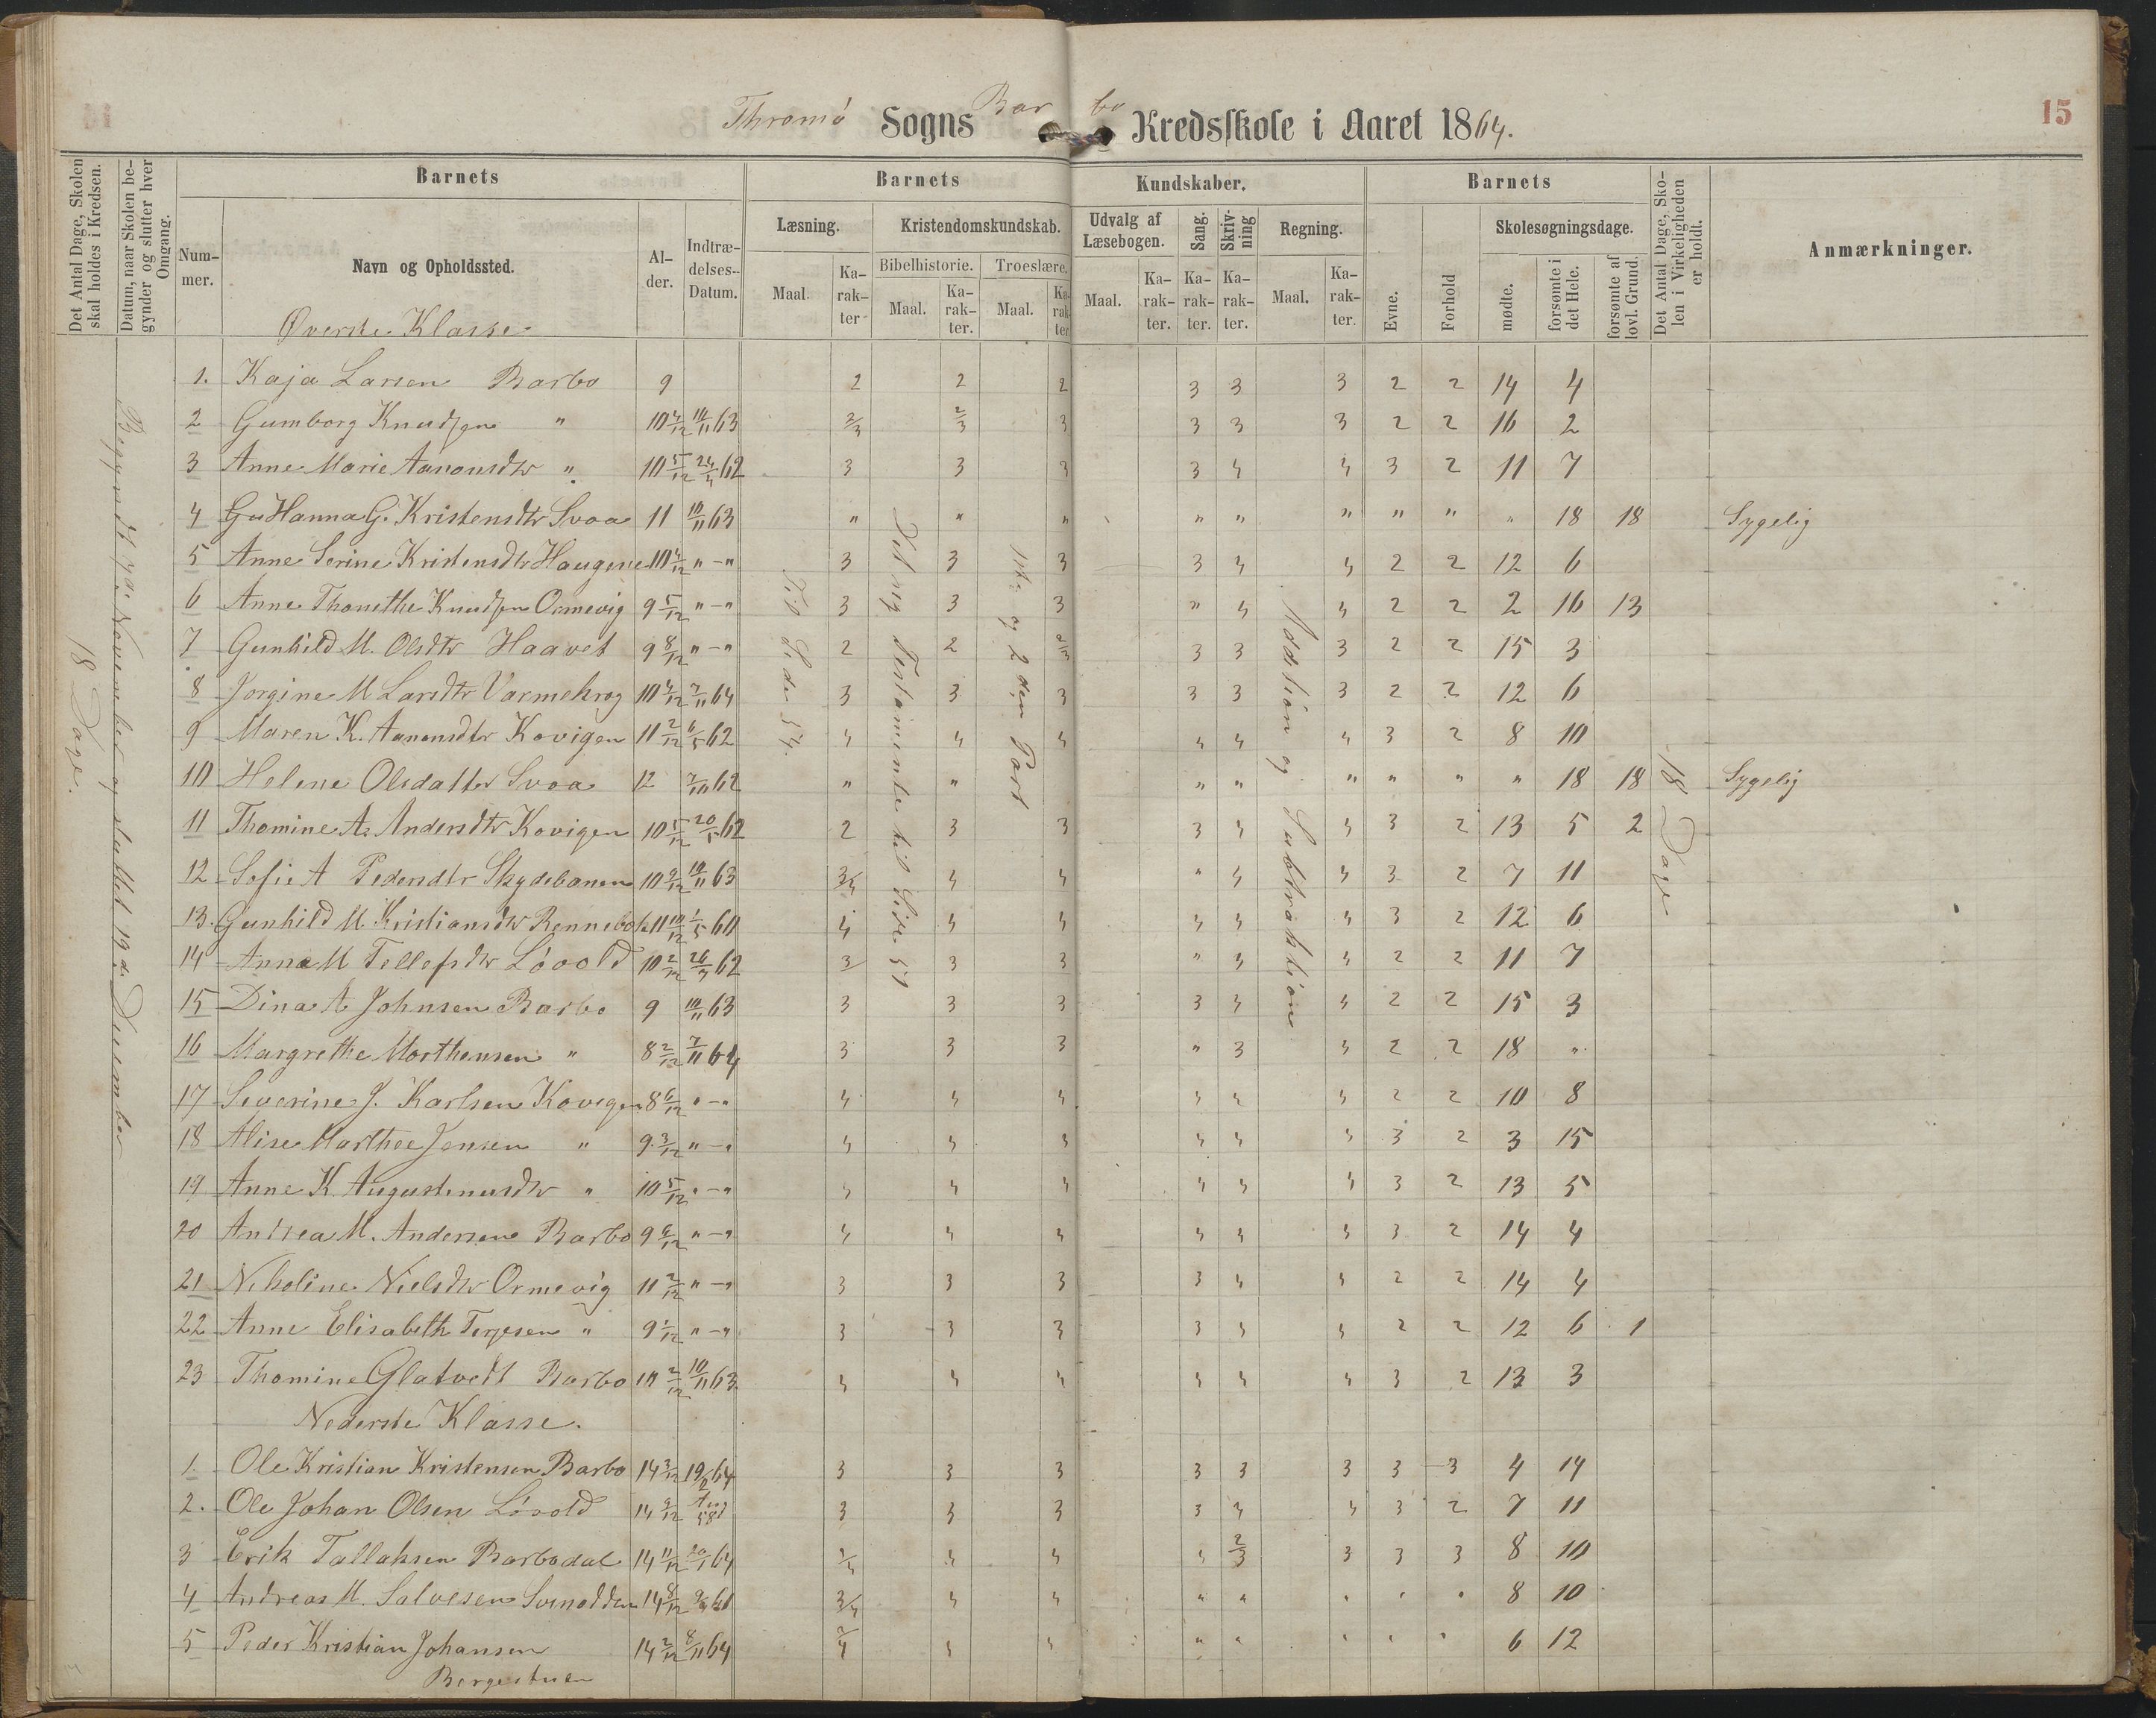 Thromø Sogns Barbo Kredsskole i Aaret 1864.
15
Det Antal Dage, Skolen skal holdes i Kredsen.
Datum, naar Skolen begynder og slutter hver Omgang.
Barnets
Nummer.
Navn og Opholdssted.
Alder.
Indtrædelses-Datum.
Barnets Kundskaber.
Læsning.
Maal.
Karakter
Kristendomskundskab.
Bibelhistorie.
Maal.
Karakter.
Troeslære.
Maal.
Karakter
Udvalg af Læsebogen.
Maal.
Karakter.
Sang.
Karakter.
Skrivning
Karakter.
Regning.
Maal.
Karakter.
Barnets
Evne.
Forhold
Skolesøgningsdage.
mødte.
forsømte i det Hele.
forsømte af lovl. Grund.
Det Antal Dage, Skolen i Virkeligheden er holdt.
Anmærkninger.
18 Dage.
Til Side 54.
1ste og 2den Part
Addition og Subtraktion
18 Dage
Øverste Klasse
1. Kaja Larsen Barbo 9 2 2 2 3 3 3 2 2 14 4
2 Gumborg Knudsen " 10 4/12 10/11 63 2/3 2/3 3 3 3 3 2 2 16 2
3 Anne Marie Aanonsdtr " 10 5/12 24/4 62 3 3 3 3 4 4 3 2 11 7
4 Hanna G. Kristensdtr Svoa 11 10/11 63 " " " " " " " " " 18 18 Sygelig
5 Anne Serine Kristensdtr Haugene 10 4/12 " - " 3 3 3 3 4 4 2 2 12 6
6 Anne Thonethe Knudsen Ormevig 9 5/12 " - " 3 3 3 " 4 4 2 2 2 16 13
7 Gunhild M. Olsdtr Haavet 9 8/12 " - " 2 2 2/3 3 3 3 2 2 15 3
8 Jorgine M Larsdtr Varmekrog 10 4/12 7/11 64 3 3 3 3 3 3 2 2 12 6
9 Maren K. Aanonsdtr Kovigen 11 2/12 6/5 62 4 4 4 4 4 4 3 2 8 10
10 Helene Olsdatter Svoa 12 7/10 62 " " " " " " " " 18 18 Sygelig
11 Thomine A. Andersdtr Kovigen 10 5/12 20/5 62 2 3 3 3 4 4 3 2 13 5 2
12 Sofie A Pedersdtr Skydebanen 10 9/12 10/11 63 3/4 4 4 " 4 4 3 2 7 11
13. Gunhild M. Kristiansdtr 11 10/12 1/5 60 4 4 4 4 4 4 3 2 12 6
14 Anna M Tellefsdtr Lóvold 10 2/12 62 3 3 3 " 4 2 2 11 7
15 Dina A. Johnsen Barbo 9 10/11 63 3 3 3 3 4 4 2 2 15 3
16 Margrethe Morthensen " 8 2/12 7/11 64 3 3 3 " 3 4 2 2 18 "
17 Severine J. Karlsen Kovigen 8 6/12 " - " 4 4 4 4 4 4 2 2 10 8
18 Alise Marthee Jensen " 9 3/12 " - " 4 4 4 4 4 4 3 2 3 15
19 Anne K. Augustinusdtr " 10 5/12 " - " 4 4 4 4 4 4 3 2 13 5
20 Andrea M. Andersen Barbo 9 6/12 " - " 4 4 4 4 4 4 3 2 14 4
21 Nikoline Nielsdtr Ormevig 11 2/12 " - " 3 3 3 3 4 4 2 2 14 4
22 Anne Elisabeth Terjesen " 9 1/12 " - " 3 3 3 3 4 4 2 2 12 6 1
23 Thomine Glatvedt Barbo 2/12 10/11 63 4 4 4 4 4 4 3 2 13 3
Nederste Klasse.
1. Ole Kristian Kristensen Barbo 14 3/12 64 3 3 3 3 3 3 3 3 4 14
2. Ole Johan Olsen Lóvold 14 3 3 3 3 4 4 3 2 7 11
3 Erik Tallaksen Barbodal 14 11/12 64 4 4 4 2/3 3 3 3 8 10
4 Andreas M. Salvesen 14 8/12 3/4 4 4 " " " " " 8 10
5 Peder Kristian Johansen 14 2/12 8/11 64 4 4 " " " " " 6 12
Bergestuen